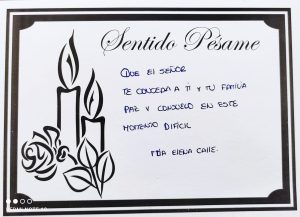 Sentido Pésame
QUE EL SEÑOR
TE CONCEDA A TI Y TU FAMILIA
PAZ Y CONSUELO EN ESTE
MOMENTO DIFICIL
Mª ELENA CALLE.